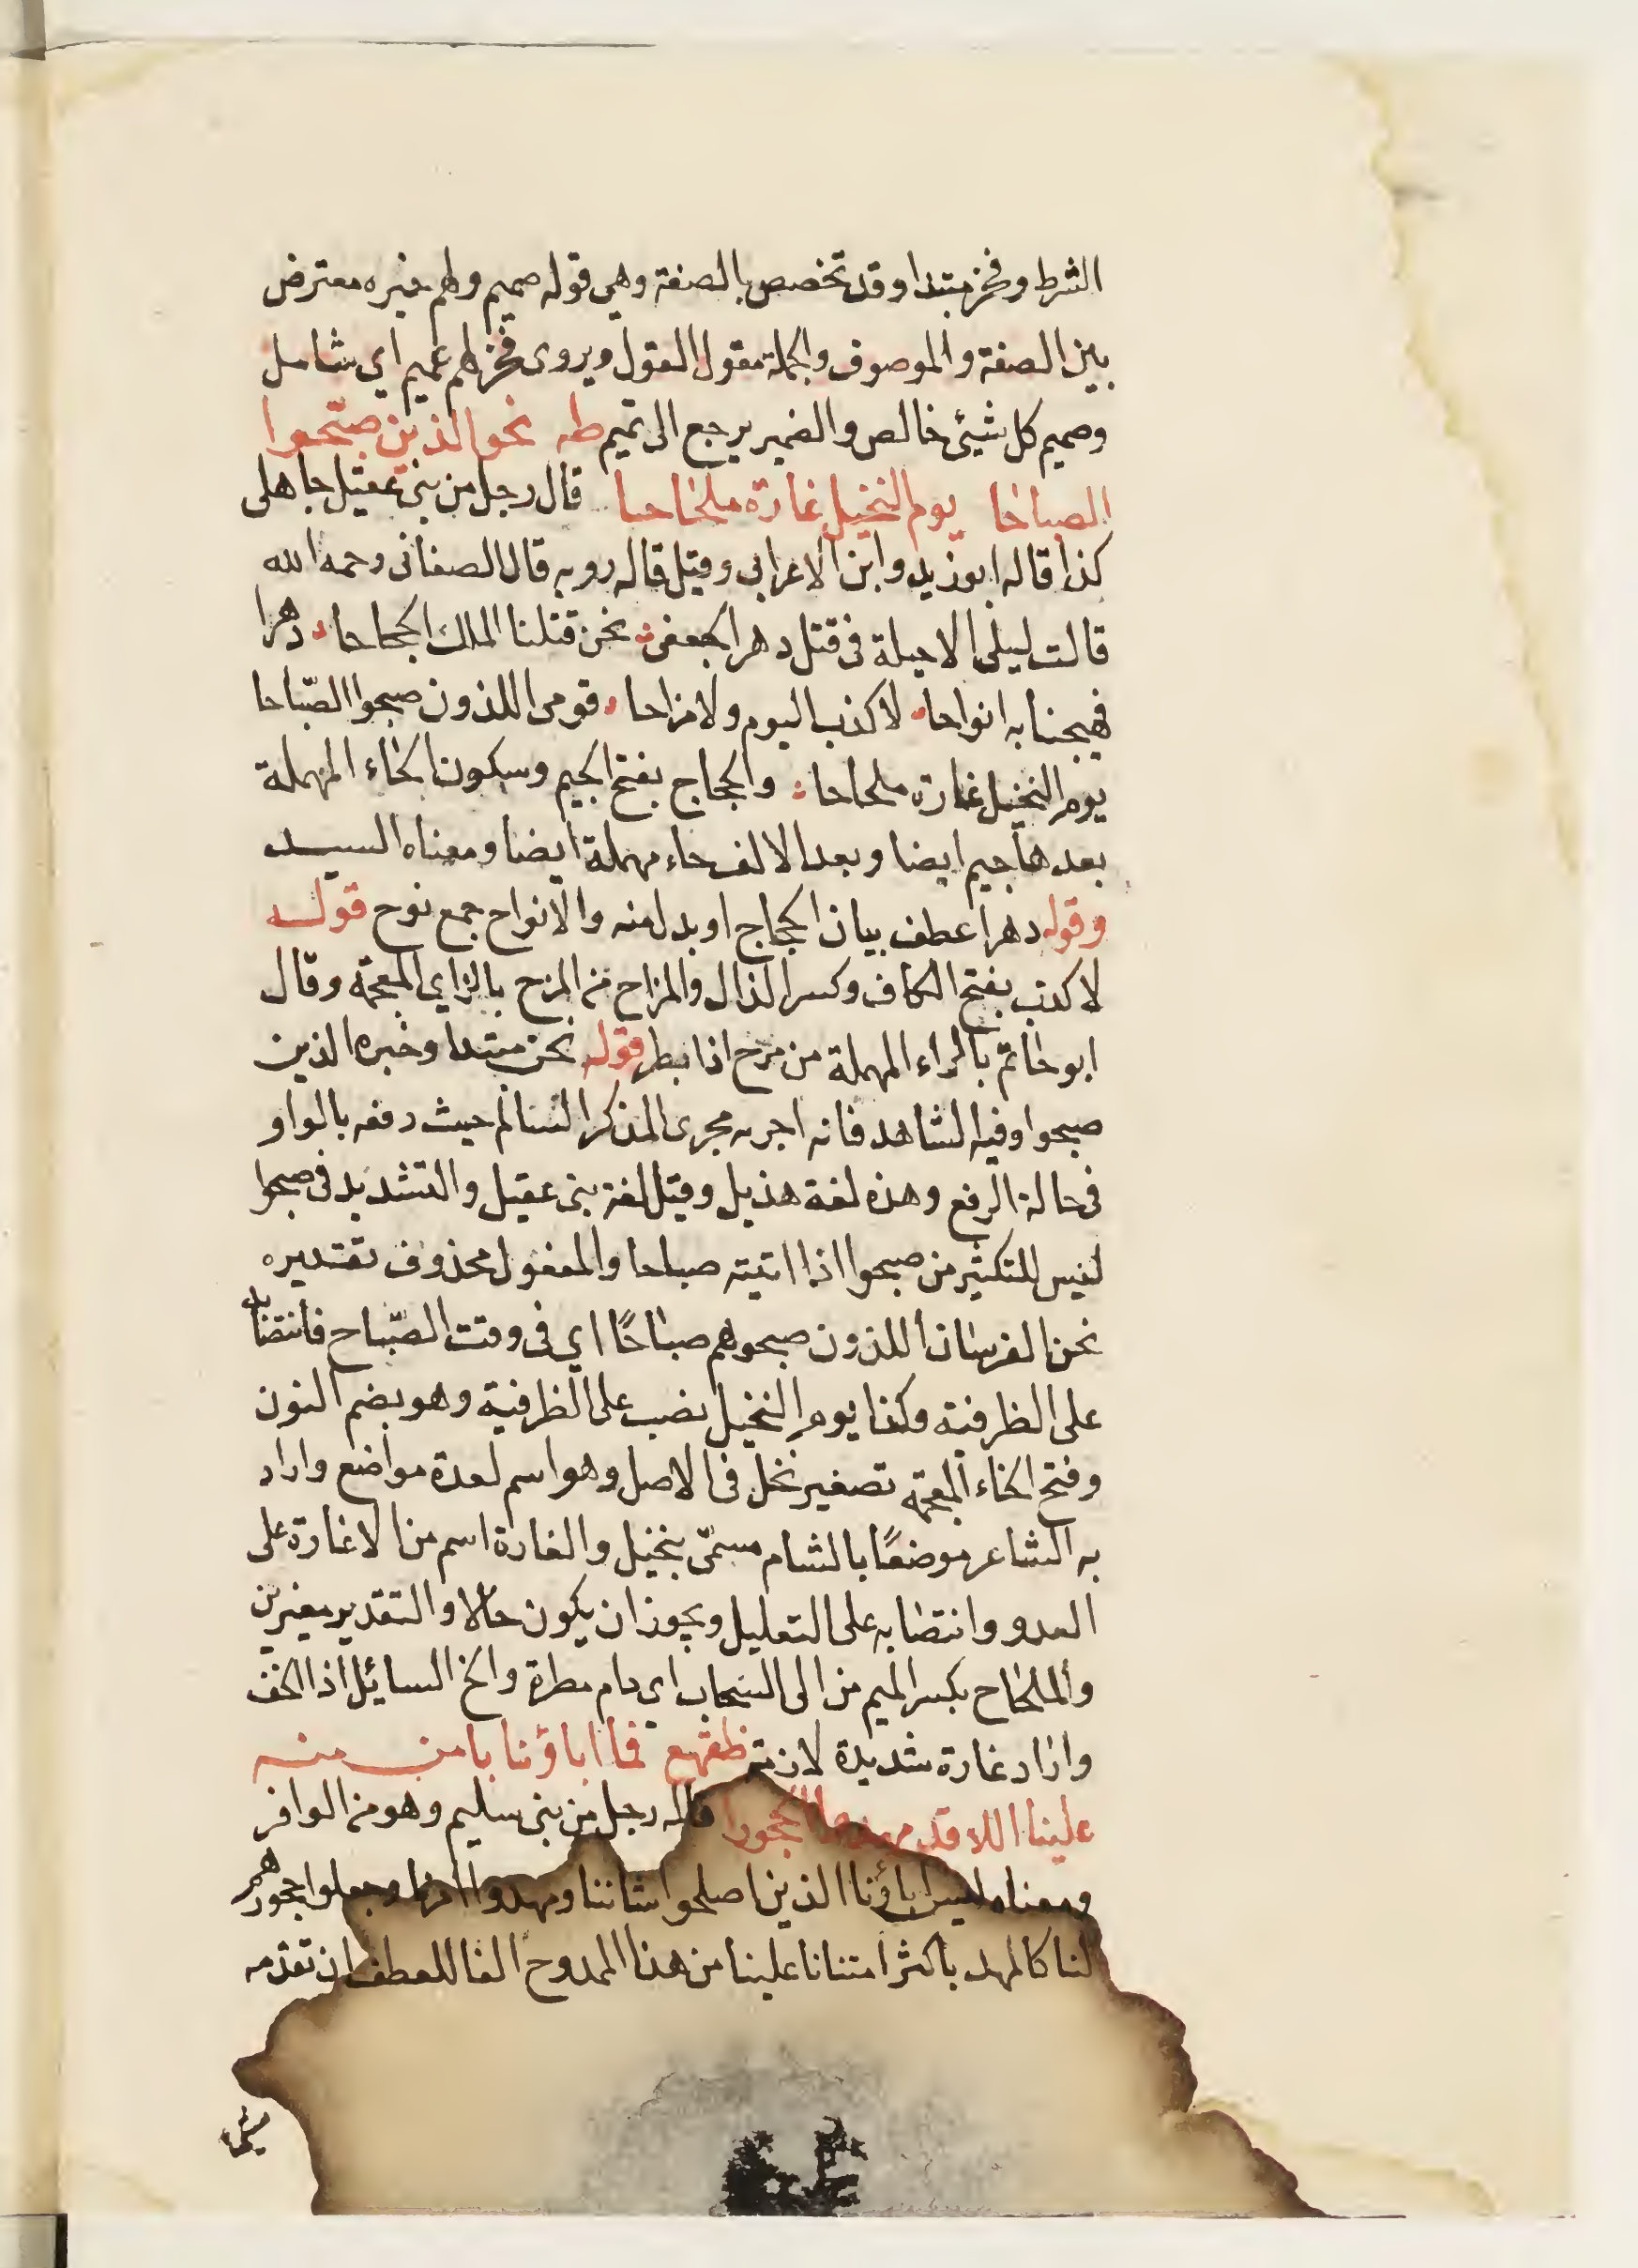 الشرط وفخر مبتدا وقد تخصص بالصفة وهي قوله صميم ولهم خبره معترض
بين الصفة والموصوف والجملة مقول القول ويروى فخر لهم عميم اي شامل
وصميم كل شيئ خالص والضمير يرجع الى تميم طه نحو الذين صبّحوا
الصباحا يوم النخيل غارة ملحاحا قال رجل من بنى عقيل جاهلى
كذا قاله ابو زيد وابن الاعرابى وقيل قاله روبه قال الصغانى رحمه الله
قالت ليلى الاخيلة فى قتل دهر الجعفى نحن قتلنا الملك الجحجاحا دهرا
فهيجنا به انواحا لا كذب اليوم ولا مزاحا قومى اللذون صبحوا الصّباحا
يوم النخيل غارة ملحاحا والجحاج بفتح الجيم وسكون الحاء المهملة
بعدها جيم ايضا وبعد الالف حاء مهملة ايضا ومعناه السيد
وقوله دهرا عطف بيان الججاج او بدل منه والانواح جمع نوح قوله
لا كذب بفتح الكاف وكسر الذال والمزاح من المزح بالزاي المعجمة وقال
ابو حاتم بالراء المهملة من مرح اذا بطر قوله نحن مبتدا وخبره الذين
صبحوا وفيه الشاهد فانه اجره مجرى المذكر السالم حيث رفعه بالواو
فى حالة الرفع وهذه لغة هذيل وقيل لغة بنى عقيل والتشديد فى صبحوا
ليس للتكثير من صبحوا اذا اتيته صباحا والمفعول محذوف تقديره
نحن الفرسان اللذون صبحوهم صباحًا اي فى وقت الصّباح فانتصابه
على الظرفية وكذا يوم النخيل نصب على الظرفية وهو بضم النون
وفتح الخاء المعجمة تصغير نخل فى الاصل وهو اسم لعدة مواضع واراد
به الشاعر موضعًا بالشام مسمّى بنخيل والغارة اسم من الاغارة على
العدو وانتصابه على التعليل ويجوز ان يكون حالا والتقدير مغيرين
والملحاح بكسر الميم من الى السحاب اي دام مطرة والخ السائيل اذا الخف
واراد غارة شديدة لازمة ظقهع فما اباؤنا بامن منه
علينا اللا قد مهدوا الحجورا قاله رجل من بنى سليم وهو من الوافر
ومعناه ليس اباؤنا الذين اصلحوا شاننا ومهدوا امرنا وجعلوا حجورهم
لنا كالمهد باكثر امتنانا علينا من هذا الممدوح الفا للعطف ان تقدمه